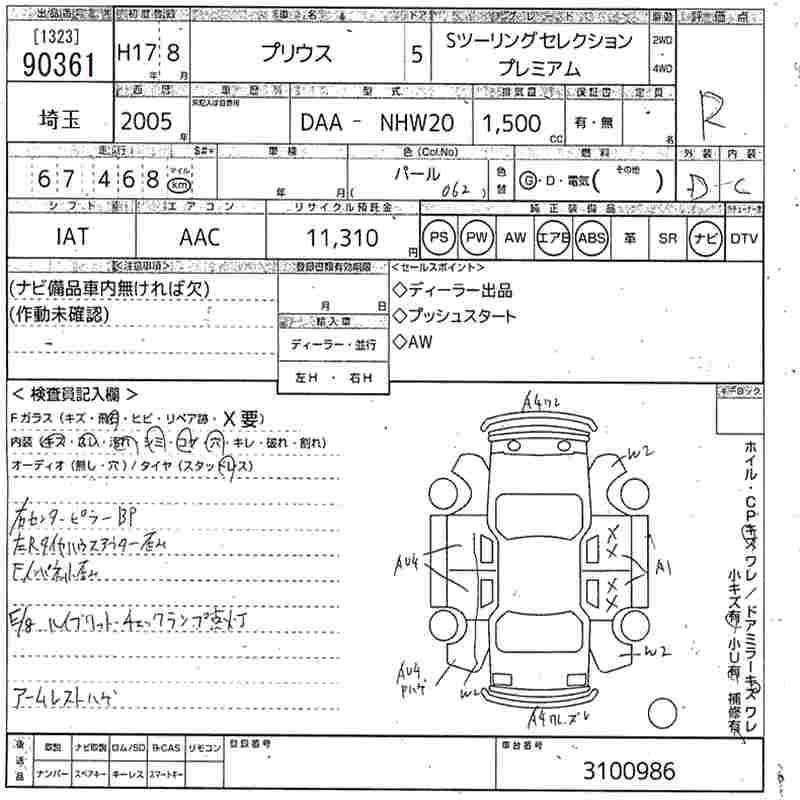 出品番号 初度登録 車名 ドア グレード 駆動 評価点
[1323]
90361 H17 年 8 月 プリウス 5 Sツーリングセレクション
プレミアム 2WD
4WD
R
西暦 車歴 型式 排気量 保証書 定員
未記入は自家用
埼玉 2005 年 DAA - NHW20 1,500 CC 有・無 名
走行 S#* 車検 色 (Col.No) 燃料 外装 内装
67468 マイル km 年 月 パール
(062) 色替 G・D・電気( その他 ) D - C
シフト エアコン リサイクル預託金 純正装備品
IAT AAC 11,310 円 PS PW AW エアB ABS 革 SR ナビ DTV
<注意事項> 登録書類有効期限 <セールスポイント>
(ナビ備品車内無ければ欠)
(作動未確認)
月 日
輸入車
ディーラー・並行
左H ・ 右H
◇ディーラー出品
◇プッシュスタート
◇AW
< 検査員記入欄 >
Fガラス (キズ・飛石・ヒビ・リペア跡・X要)
内装 (キズ・汚れ・シミ・コゲ・穴・キレ・破れ・割れ)
オーディオ (無し・穴) / タイヤ (スタッドレス)
右センターピラーBP
左Rタイヤハウスアウター歪み
E/g ハイブリットチェックランプ点灯
アームレストハゲ
A4ワレ
W2
AU4
X
X
X
X
A1
AU4
Pハゲ
W2
W2
A4ワレズレ
ホイル・CPキズワレ / ドアミラーキズワレ
小キズ有 小U有 補修有
後送品 取説 ナビ取説 ロム/SD B-CAS リモコン
ナンバー スペアキー キーレス スマートキー
登録番号 車台番号
3100986